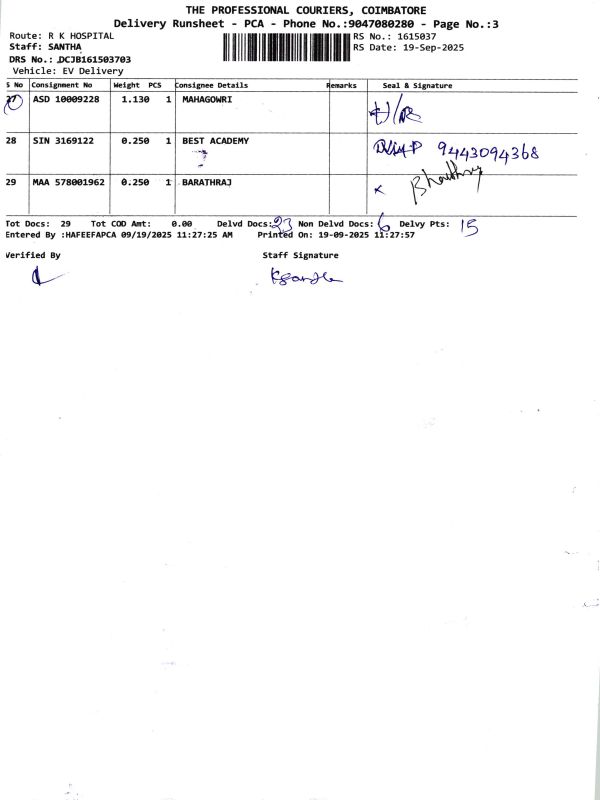 THE PROFESSIONAL COURIERS, COIMBATORE
Delivery Runsheet - PCA - Phone No.:9047080280 - Page No.:3
Route: R K HOSPITAL
RS No.: 1615037
Staff: SANTHA
RS Date: 19-Sep-2025
DRS No.: DCJB161503703
Vehicle: EV Delivery
S No Consignment No Weight PCS Consignee Details Remarks Seal & Signature
27 ASD 10009228 1.130 1 MAHAGOWRI
28 SIN 3169122 0.250 1 BEST ACADEMY 9443094368
29 MAA 578001962 0.250 1 BARATHRAJ
Tot Docs: 29 Tot COD Amt: 0.00 Delvd Docs: 23 Non Delvd Docs: 6 Delvy Pts: 15
Entered By :HAFEEFAPCA 09/19/2025 11:27:25 AM Printed On: 19-09-2025 11:27:57
Verified By Staff Signature